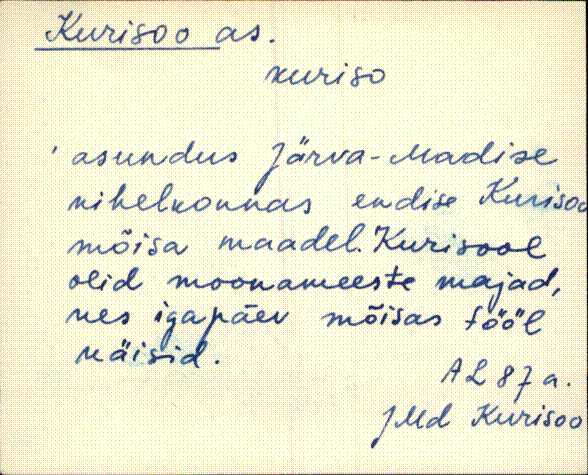 Kurisoo as.
kuriso
' asundus Järva-Madise
kihelkonnas endise Kurisoo
mõisa maadel. Kurisool
olid moonameeste majad,
kes igapäev mõisas tööl
käisid.
AL 87 a.
JMd Kurisoo